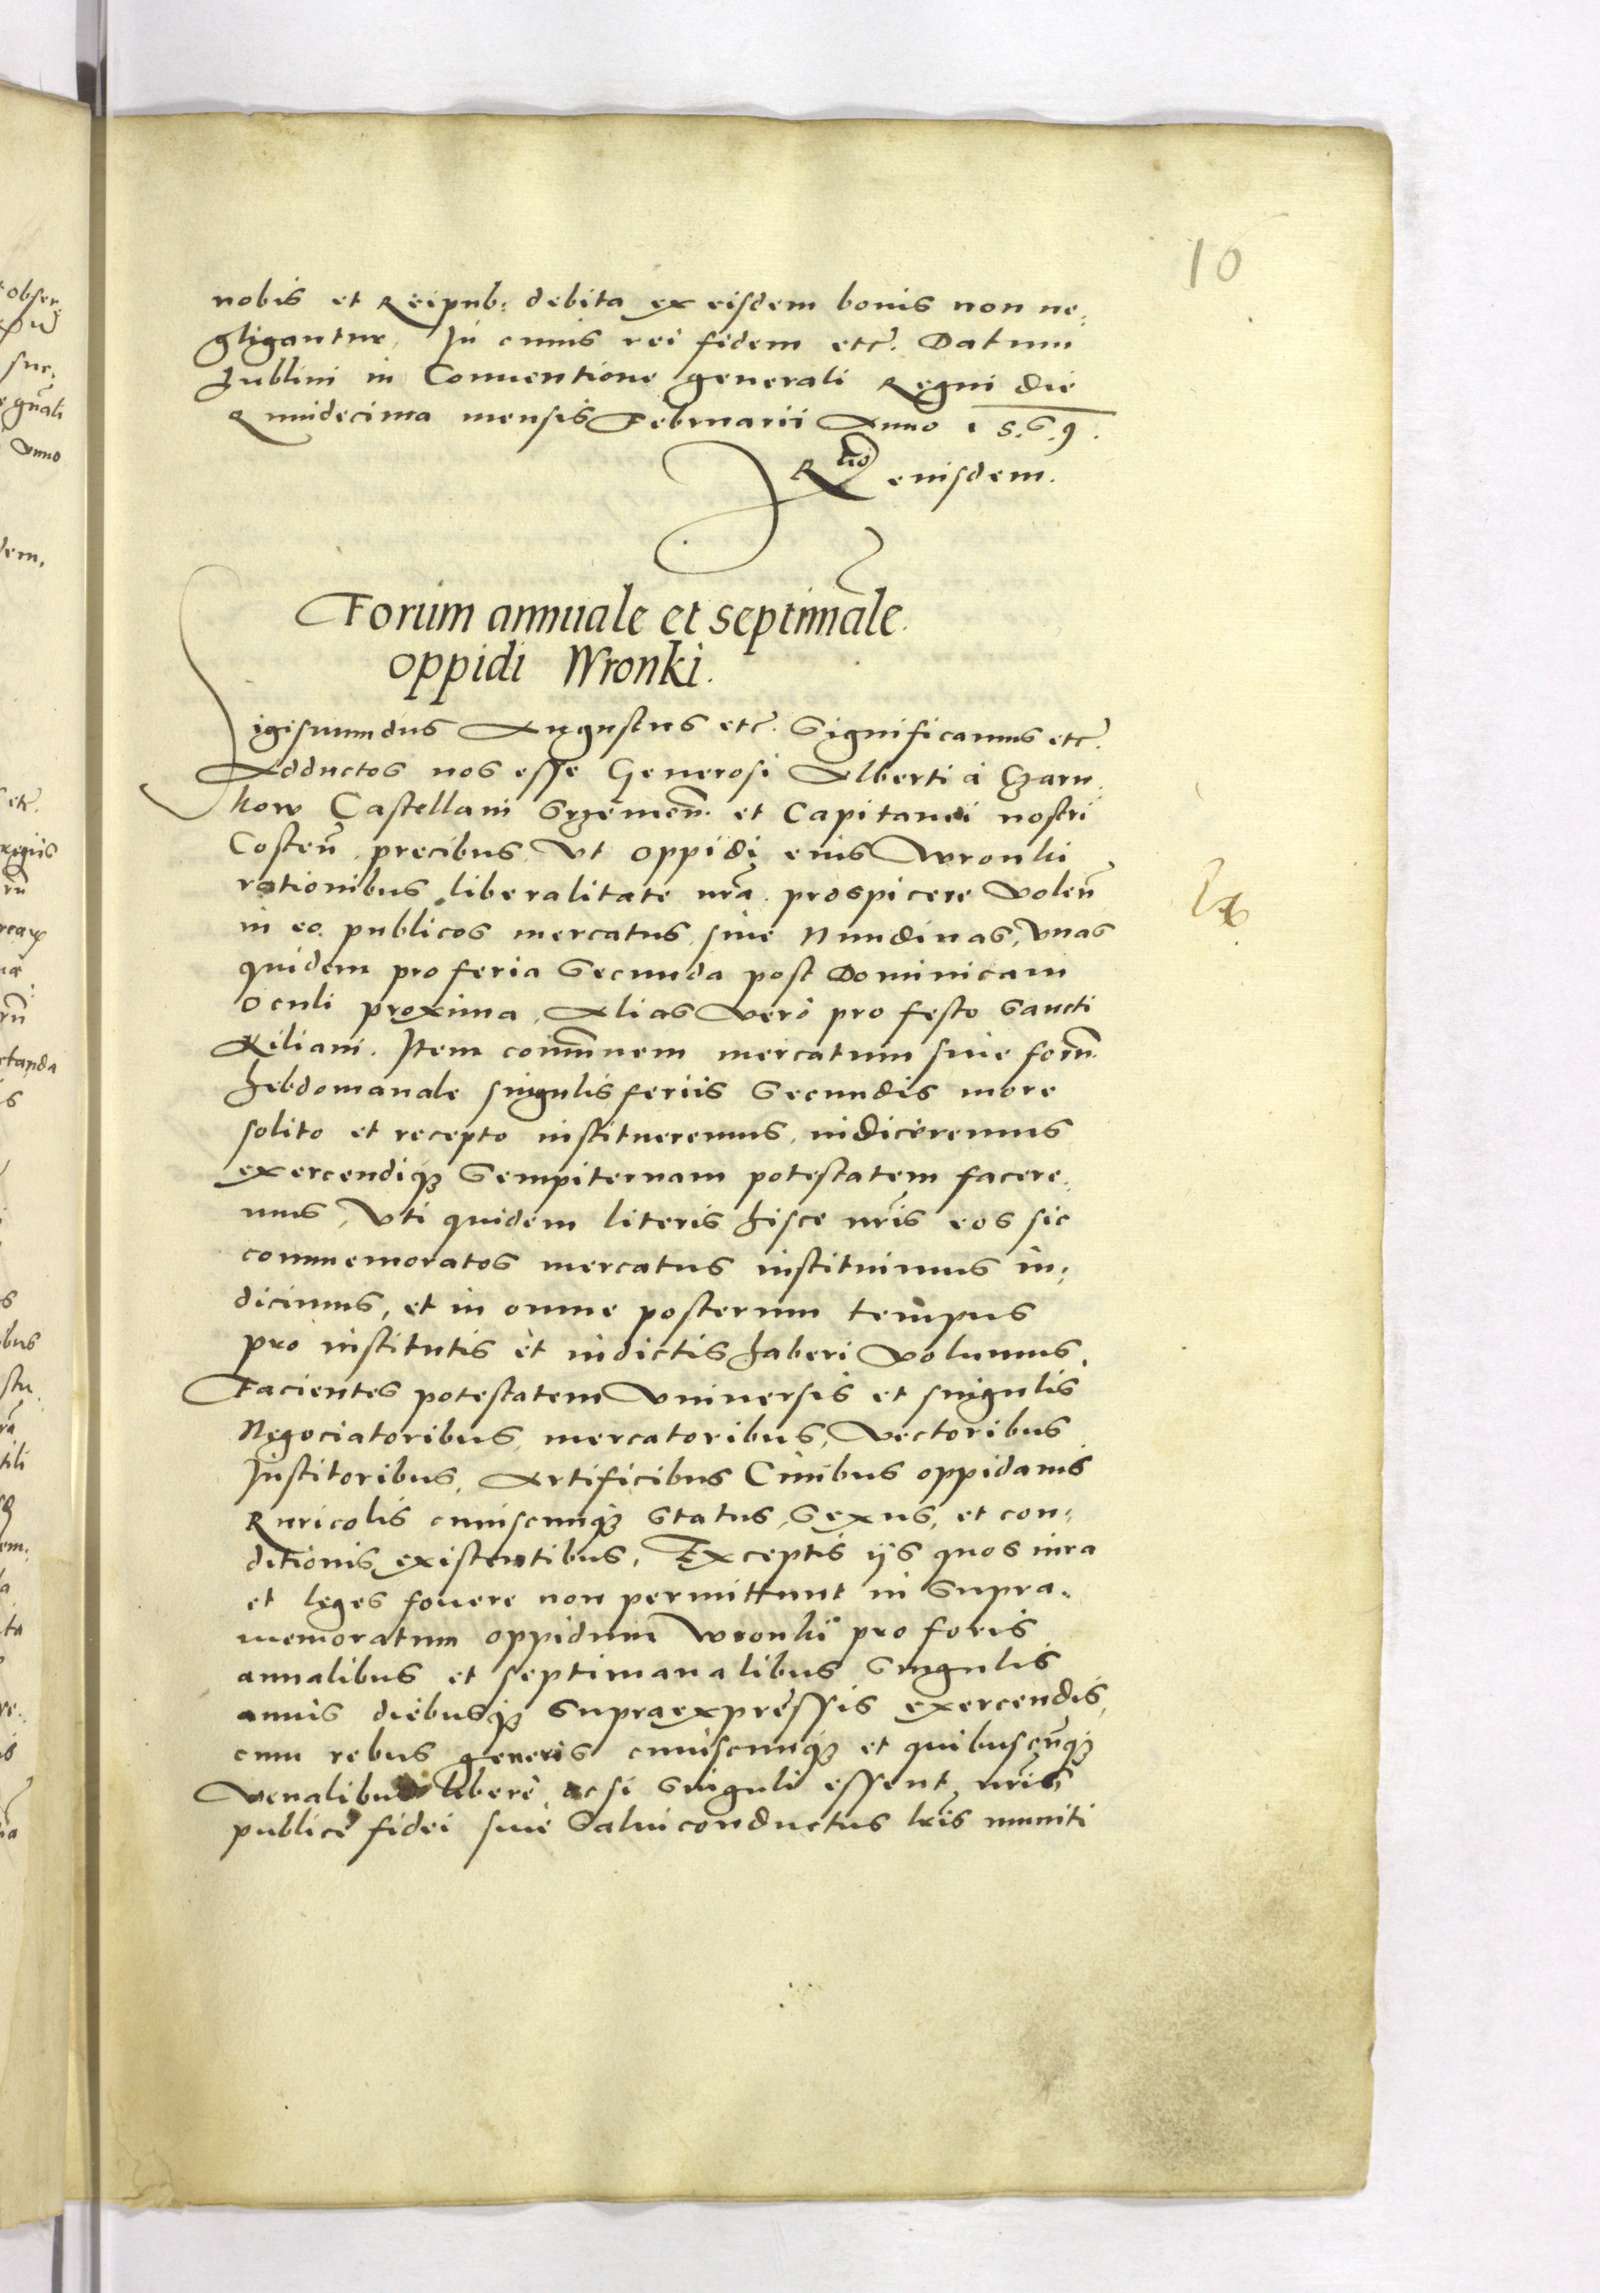 10
nobis et Reipub: debita ex eisdem bonis non ne-
gligantur. In cuius rei fidem etc. Datum
Lublini in Conuentione generali Regni die
Quindecima mensis Februarii Anno 1569.
Rtio eiusdem.
Forum annuale et septimãle
oppidi Wronki.
Sigismundus Augustus etc. Significamus etc.
Adductos nos esse Generosi Alberti à Czarn-
kow Castellani Srzemeñ. et Capitanei nostri
Costeñ. precibus, Vt oppidi eius Wronki
rationibus liberalitate nrã. prospicere Voleñ
in eo. publicos mercatus siue Nundinas, Vnas
quidem pro feria Secunda post Dominicam
Oculi proxima, Alias Vero pro festo Sancti
Kiliani. Item comũnem mercatum siue forũ
hebdomanale singulis feriis Secundis more
solito et recepto institueremus, indiceremus
exercendiq3 Sempiternam potestatem facere-
mus, Vti quidem literis hisce nrĩs eos sic
commemoratos mercatus instituimus in-
dicimus, et in omne posterum tempus
pro institutis et indictis haberi Volumus.
Facientes potestatem Vniuersis et singulis
Negociatoribus, mercatoribus, Vectoribus
Institoribus, Artificibus Ciuibus oppidanis
Ruricolis cuiuscunq3 Status, Sexus, et con-
ditionis existentibus, Exceptis ijs quos iura
et leges fouere non permittunt in Supra-
memoratum oppidum Wronki pro foris
annalibus et septimanalibus Singulis
annis diebusq3 Supraexpressis exercendis,
cum rebus generis cuiuscunq3 et quibuscũq3
Venalibus liberè ac si Singuli essent nrĩs
publicè fidei siue Saluiconductus lrĩs muniti